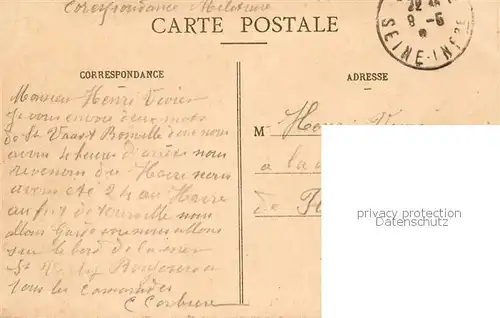 Correspondance Militaire
CARTE POSTALE
22
9-5
SEINE-INFRE
CORRESPONDANCE
ADRESSE
Monsieur Henri Vivier
je vous envoie deux mots
de St Vaast Bosville dont nous
avons 4 heures d'arrêt nous
revenons du Havre nous
avons été 24 au Havre
au fort de tourville nous
allons nous allons
sur le bord de la mer
St Bonjour a
tous les camarades
C Corbiere
M Henri
à la
de
privacy protection
watermarks